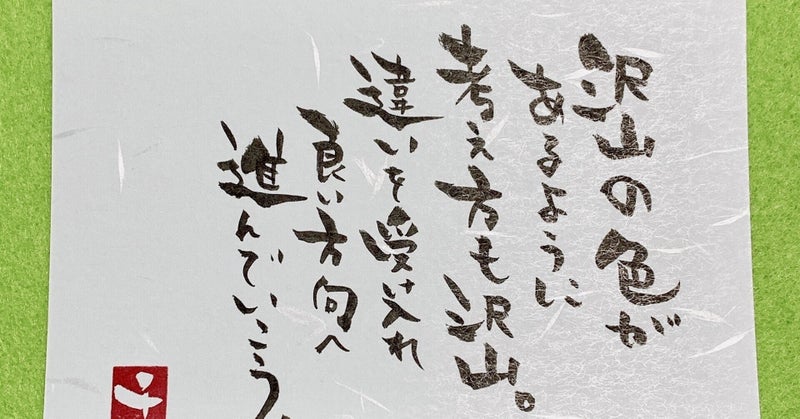 沢山の色が
あるように
考え方も沢山。
違いを受け入れ
良い方向へ
進んでいこう